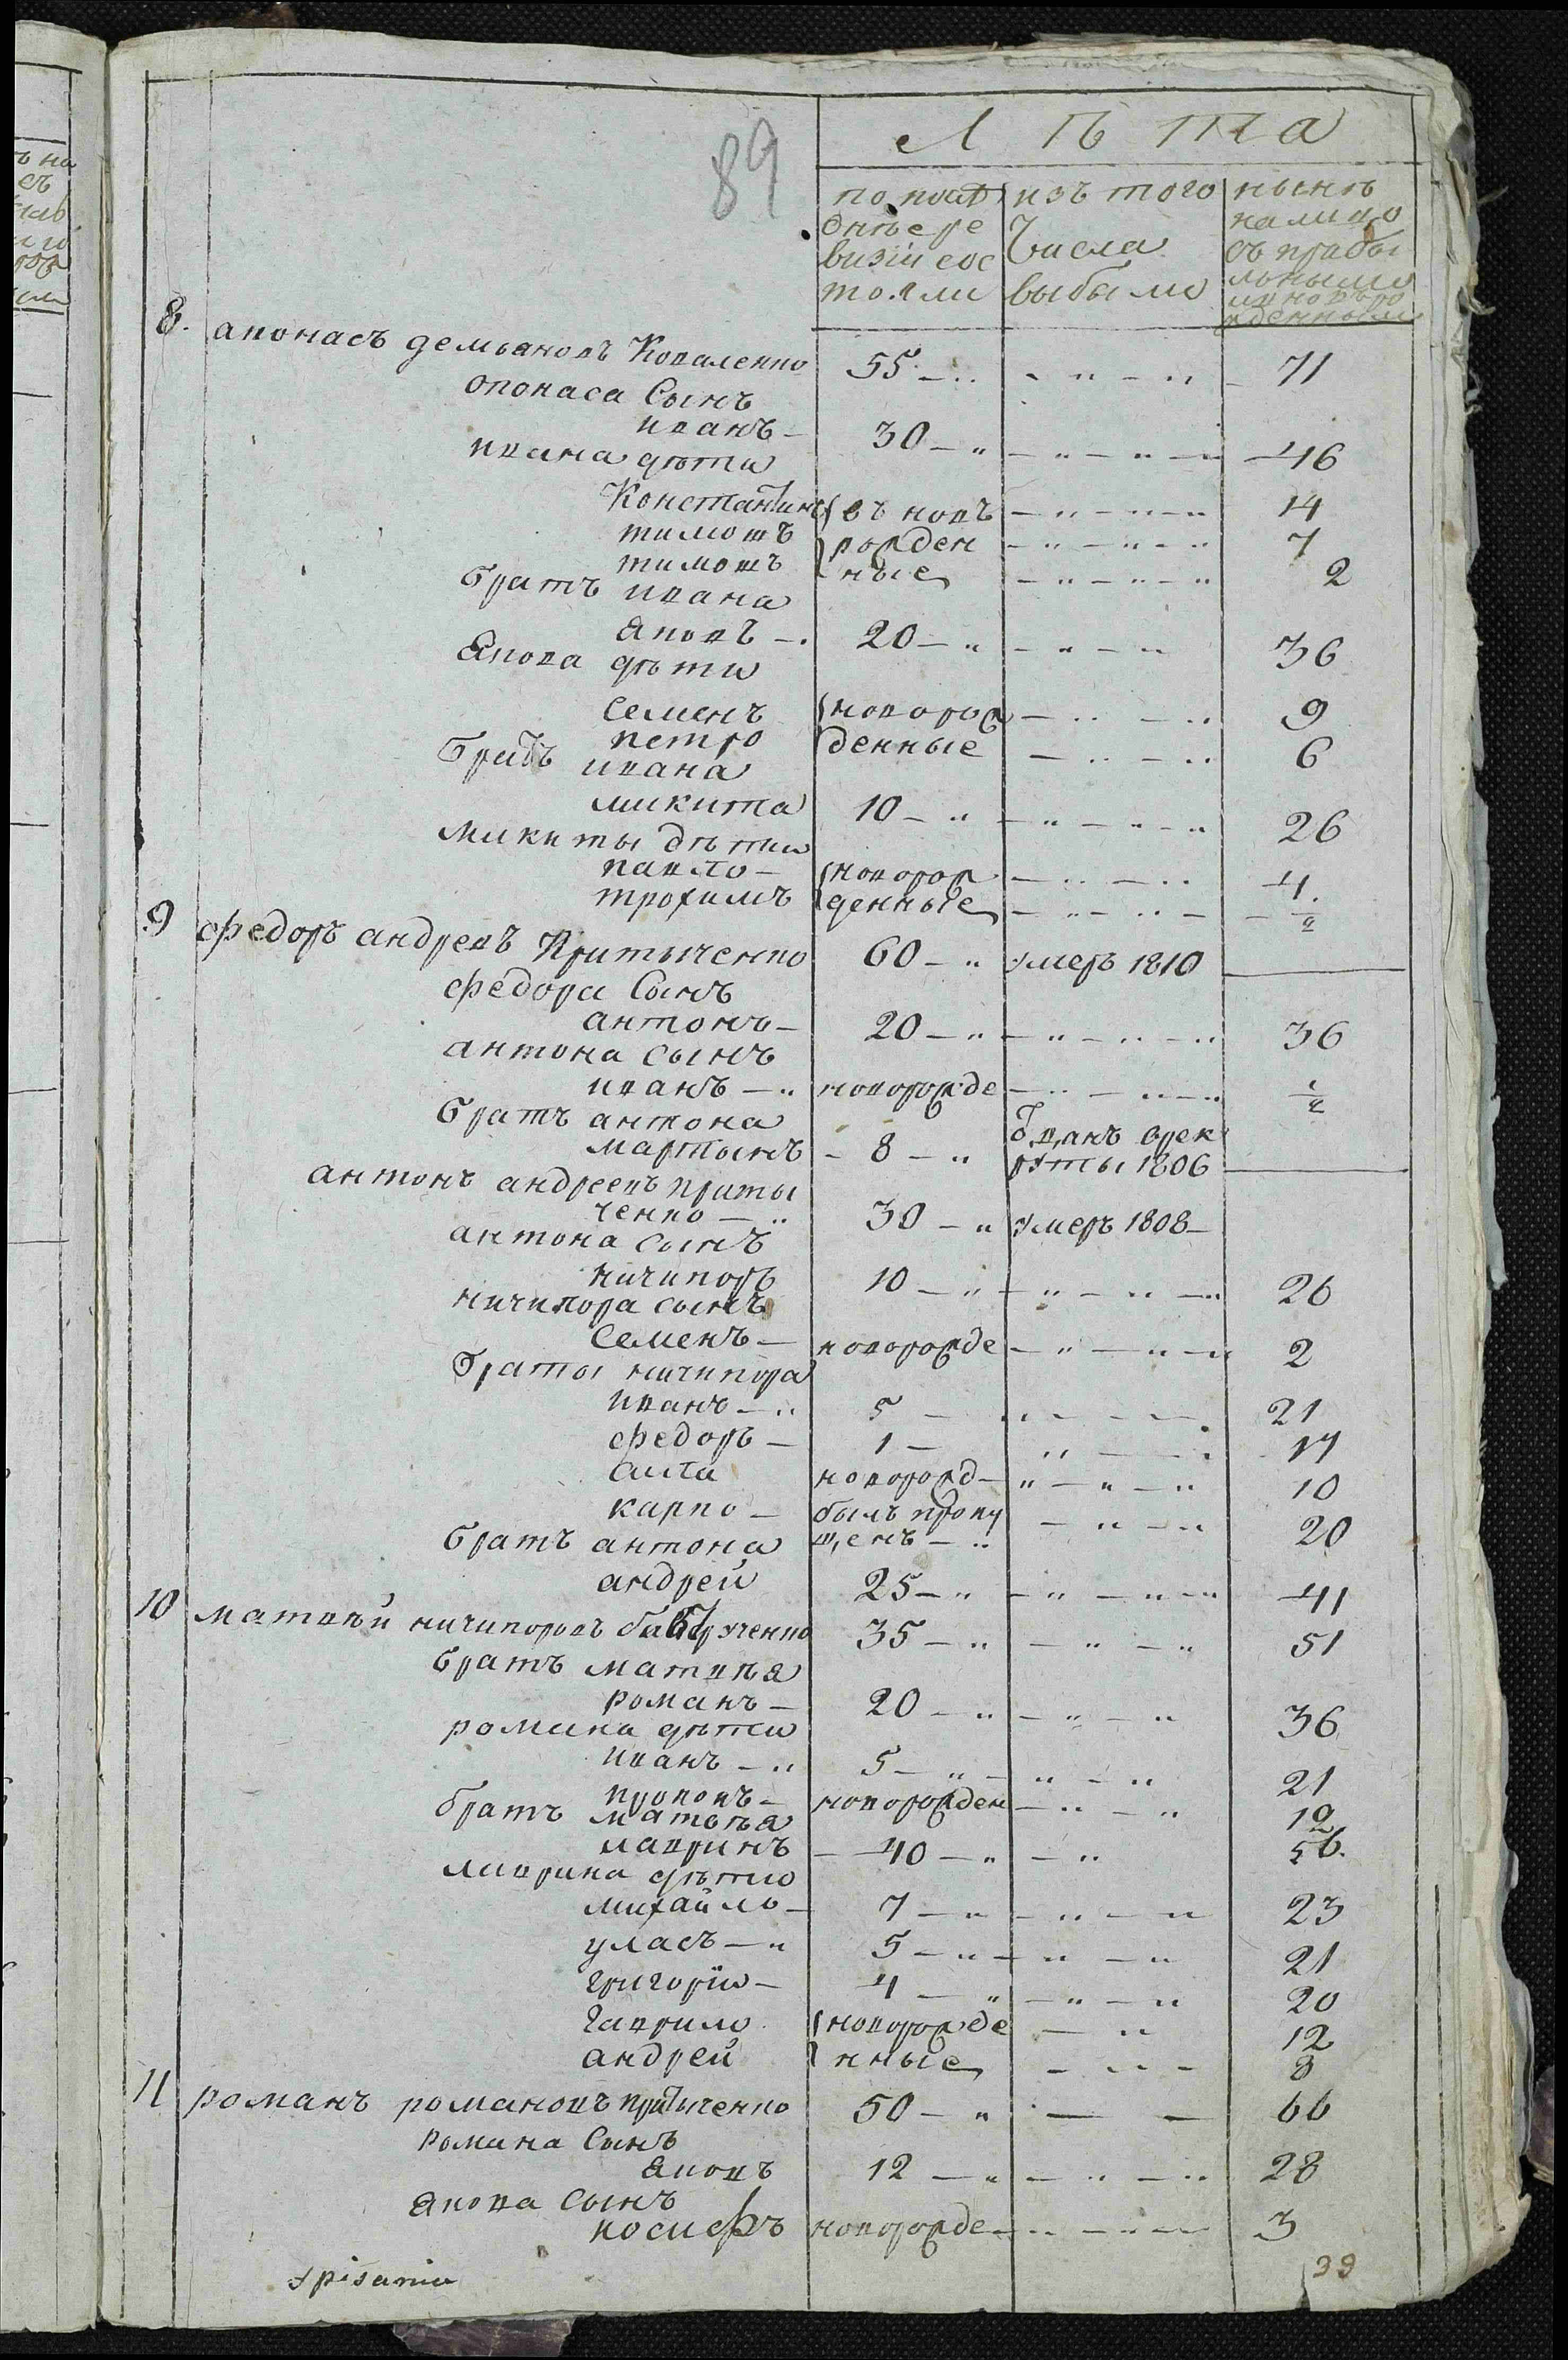 89
Лѣта
по послѣ
днѣе ре
визіи сос
тояли
изъ того
числа
выбыло
нынѣ
налицо
съ прабы
льными
и новъро
жденными
8. апонасъ демьановъ Коваленко 55 71
опонаса Сынъ
иванъ 30 46
ивана дѣти
Константинъ въ новъ 14
тимошъ рожден 7
тимошъ ные 2
братъ ивана
Яковъ 20 36
Якова дѣти
Семенъ новорож 9
петро денные 6
братъ ивана
микита 10 26
микиты дѣти
павло новорож 4
трофимъ денные
9 федоръ андревъ Притыченко 60 умеръ 1810
федора Сынъ
антонъ 20 36
антона Сынъ
иванъ новорожде
братъ антона
мартынъ 8 ѿданъ врек
руты 1806
антонъ андреевъ приты
ченко 30 умеръ 1808
антона Сынъ
ничипоръ 10 26
ничипора сынъ
Семенъ новорожде 2
браты ничипора
иванъ 5 21
федоръ 1 17
новорожд 10
карпо былъ пропу 20
щенъ
братъ антона
андрей 25 41
10 матвѣй ничипоровъ 35 51
братъ матвѣя
романъ 20 36
романа дѣти
иванъ 5 21
новорожден
братъ матвѣя
лавринъ 40 56
лаврина дѣти
михайло 7 23
уласъ 5 21
григорій 4 20
гаврило новорожде 12
андрей нные 8
11 романъ романовъ притыченко 50 66
романа Сынъ
Яковъ 12 28
Якова Сынъ
иосифъ новорожде 3
33